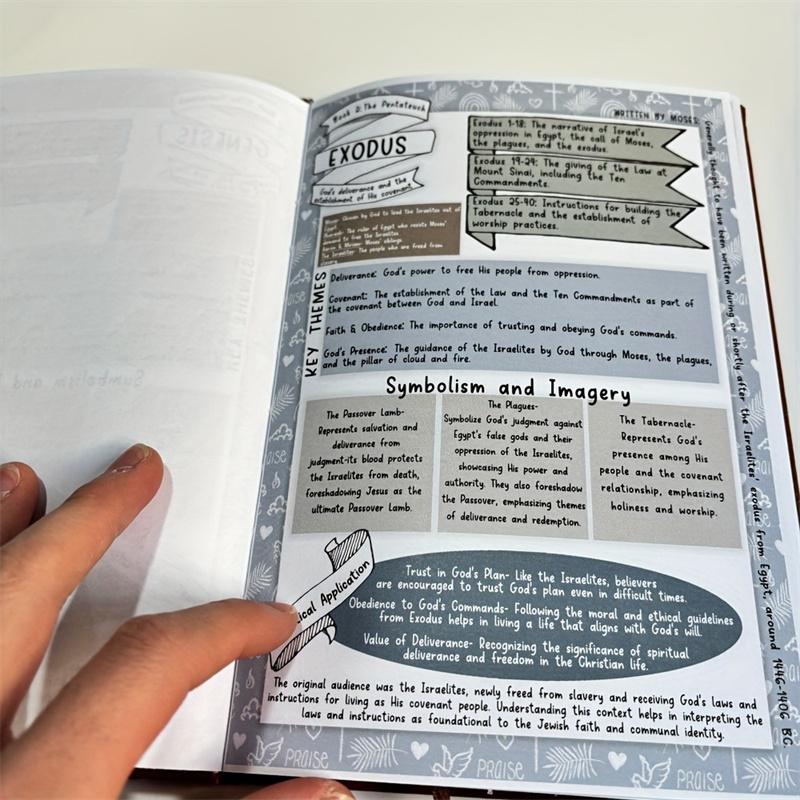 Book 2: The Pentateuch
EXODUS
God's deliverance and the
establishment of His covenant
WRITTEN BY MOSES:
Generally thought to have been written during or shortly after the Israelites' exodus from Egypt, around 1446-1406 BC
Exodus 1-18: The narrative of Israel's
oppression in Egypt, the call of Moses,
the plagues, and the exodus.
Exodus 19-24: The giving of the Law at
Mount Sinai, including the Ten
Commandments.
Exodus 25-40: Instructions for building the
Tabernacle and the establishment of
worship practices.
Moses: Chosen by God to lead the Israelites out of
Egypt.
Pharaoh: The ruler of Egypt who resists Moses'
demand to free the Israelites.
Aaron & Miriam: Moses' siblings
The Israelites: The people who are freed from
slavery
KEY THEMES
Deliverance: God's power to free His people from oppression.
Covenant: The establishment of the Law and the Ten Commandments as part of
the covenant between God and Israel.
Faith & Obedience: The importance of trusting and obeying God's commands.
God's Presence: The guidance of the Israelites by God through Moses, the plagues,
and the pillar of cloud and fire.
Symbolism and Imagery
The Passover Lamb-
Represents salvation and
deliverance from
judgment-its blood protects
the Israelites from death,
foreshadowing Jesus as the
ultimate Passover Lamb.
The Plagues-
Symbolize God's judgment against
Egypt's false gods and their
oppression of the Israelites,
showcasing His power and
authority. They also foreshadow
the Passover, emphasizing themes
of deliverance and redemption.
The Tabernacle-
Represents God's
presence among His
people and the covenant
relationship, emphasizing
holiness and worship.
ical Application
Trust in God's Plan- Like the Israelites, believers
are encouraged to trust God's plan even in difficult times.
Obedience to God's Commands- Following the moral and ethical guidelines
from Exodus helps in living a life that aligns with God's will.
Value of Deliverance- Recognizing the significance of spiritual
deliverance and freedom in the Christian life.
The original audience was the Israelites, newly freed from slavery and receiving God's laws and
instructions for living as His covenant people. Understanding this context helps in interpreting the
laws and instructions as foundational to the Jewish faith and communal identity.
PRAISE
PRAISE
PRAISE